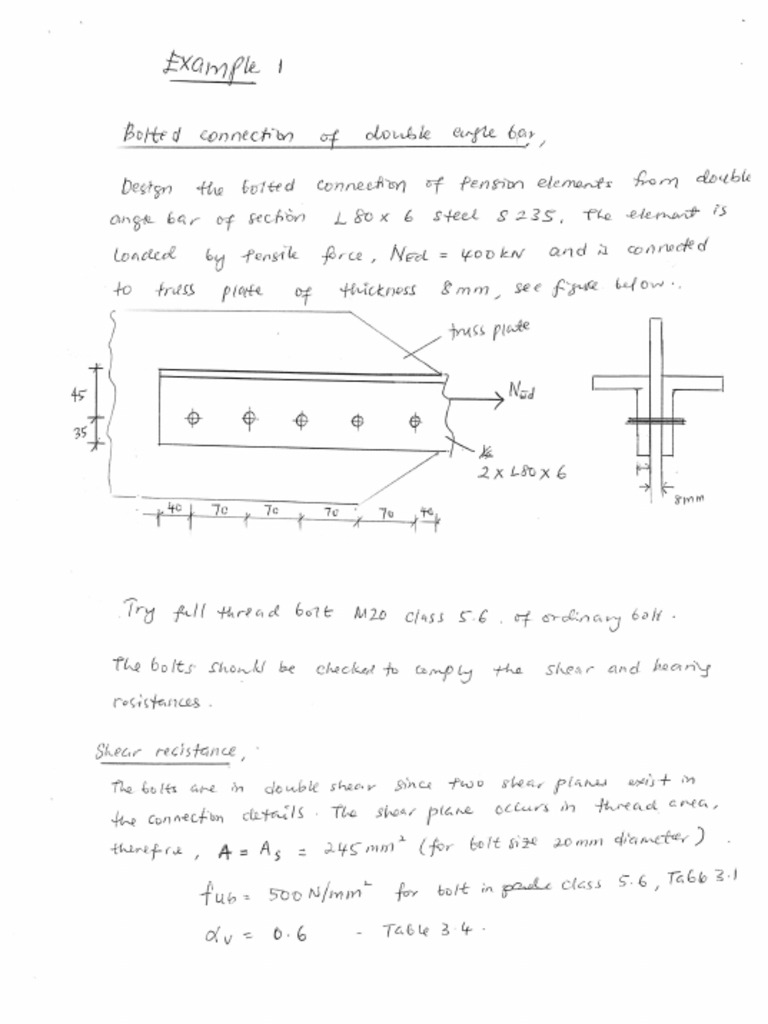 Example 1
Bolted connection of double angle bar,
Design the bolted connection of tension elements from double
angle bar of section L 80 x 6 steel S 235. The element is
loaded by tensile force, NEd = 400 kN and is connected
to truss plate of thickness 8 mm, see figure below.
truss plate
45
35
NEd
2 x L80 x 6
8mm
40 70 70 70 70 40
Try full thread bolt M20 class 5.6. of ordinary bolt.
The bolts should be checked to comply the shear and bearing
resistances.
Shear resistance,
The bolts are in double shear since two shear planes exist in
the connection details. The shear plane occurs in thread area,
therefore, A = As = 245 mm² (for bolt size 20mm diameter).
fub = 500 N/mm² for bolt in class 5.6, Table 3.1
αv = 0.6 - Table 3.4.